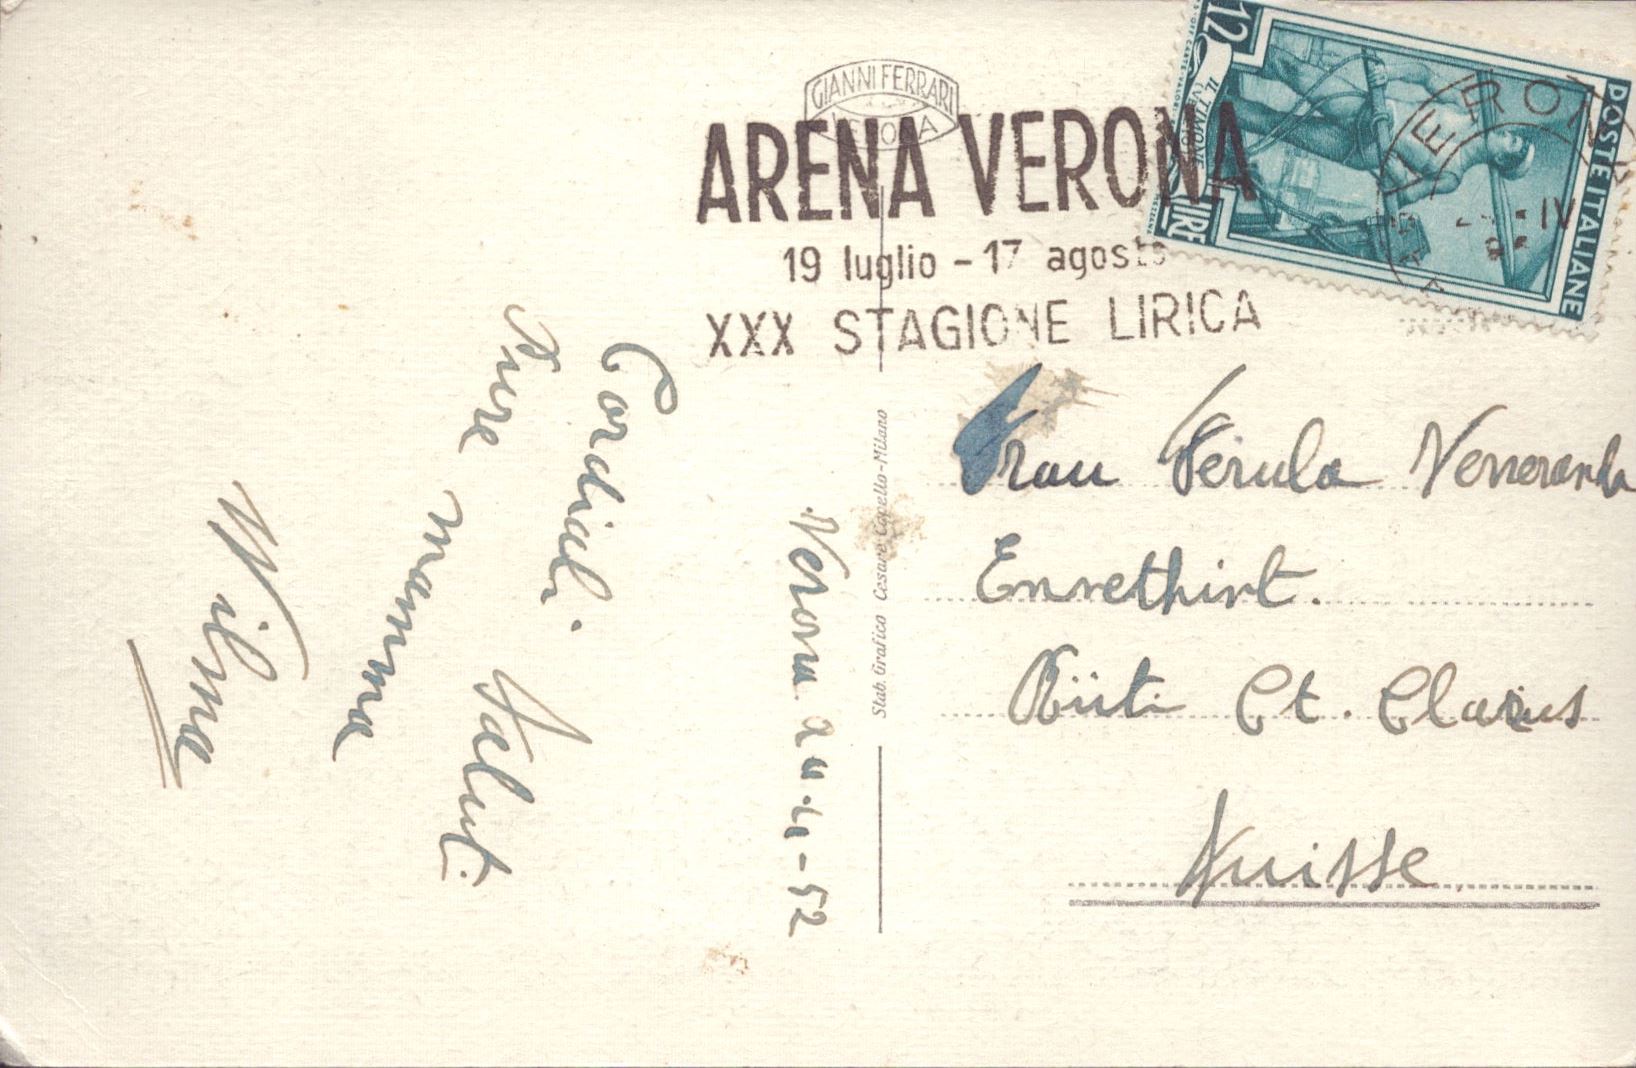 GIANNI FERRARI
VERONA
ARENA VERONA
19 luglio - 17 agosto
XXX STAGIONE LIRICA
12
LIRE
IL TIMONE
POSTE ITALIANE
VERONA
IV
Cordiali Saluti
mamma
Wilma
Verona 24-4-52
Stab. Grafico Cesare Capello-Milano
Frau Ferula Veneranda
Ennethirt.
Rüti Ct. Glarus
Suisse